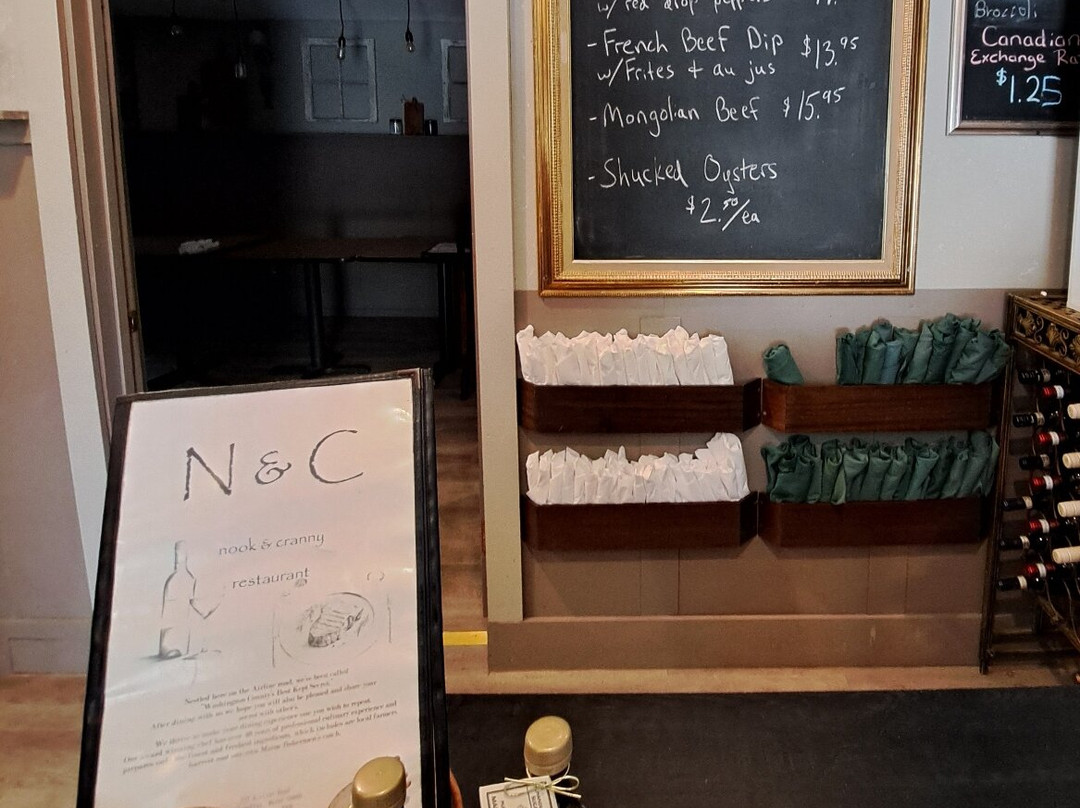 w/ red drop peppers
-French Beef Dip $13.95
w/Frites + au jus
-Mongolian Beef $15.95
-Shucked Oysters
$2.50/ea
Broccoli
Canadian
Exchange Ra
$1.25
N & C
nook & cranny
restaurant
Nestled here on the Airline road, we've been called
"Washington County's Best Kept Secret."
After dining with us we hope you will also be pleased and share your
secret with others.
We thrive to make your dining experience one you wish to repeat.
Our award winning chef has over 40 years of professional culinary experience and
prepares only the finest and freshest ingredients, which includes our local farmers
harvest and our own Maine fisherman's catch.